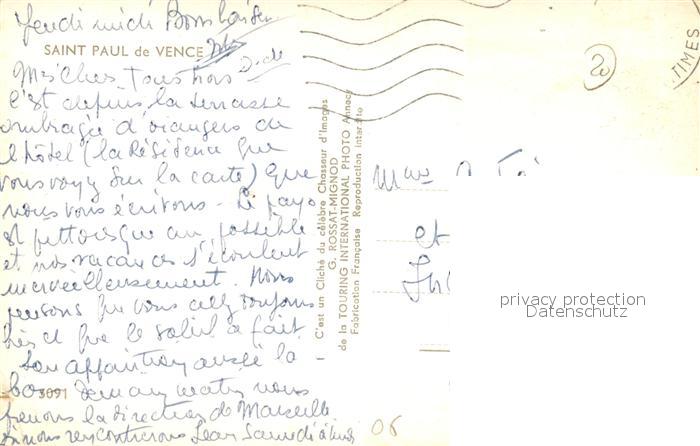 Jeudi midi Bons baisers
SAINT PAUL de VENCE
Mes Chers Tous trois
C'est depuis la terrasse
ombragée d'orangers de
l'hôtel (la Résidence que
vous voyez sur la carte) que
nous vous écrivons - Le pays
est pittoresque au possible
et nos vacances s'écoulent
merveilleusement. Nous
pensons que vous allez toujours
bien et que le soleil a fait
son apparition aussi là
bas 3091 Demain matin nous
prenons la direction de Marseille
nous rencontrerons Jean Samedi à midi
C'est un Cliché du célèbre Chasseur d'Images
G. ROSSAT-MIGNOD
de la TOURING INTERNATIONAL PHOTO Annecy
Fabrication Française Reproduction interdite
20
TIMES
Mme
et
privacy protection
Datenschutz
06